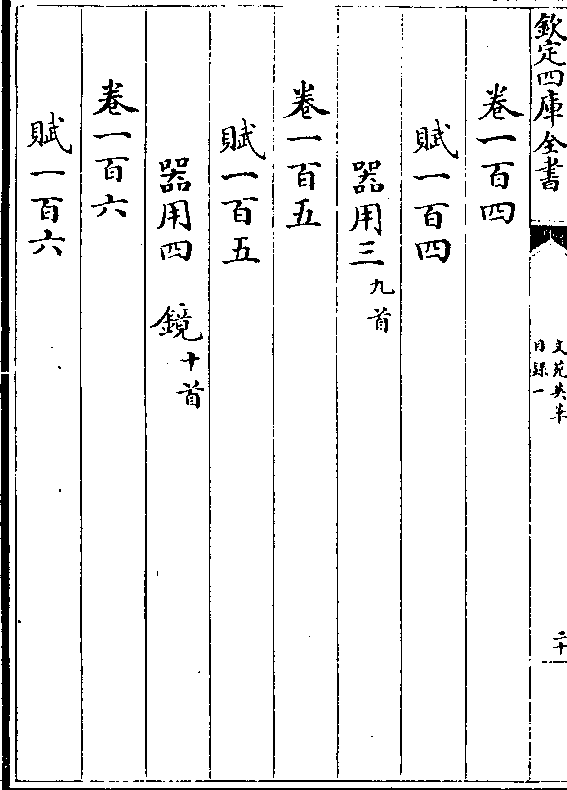 欽定四庫全書
文苑英華
目錄一
二十
卷一百四
賦一百四
器用三九首
卷一百五
賦一百五
器用四 鏡十首
卷一百六
賦一百六